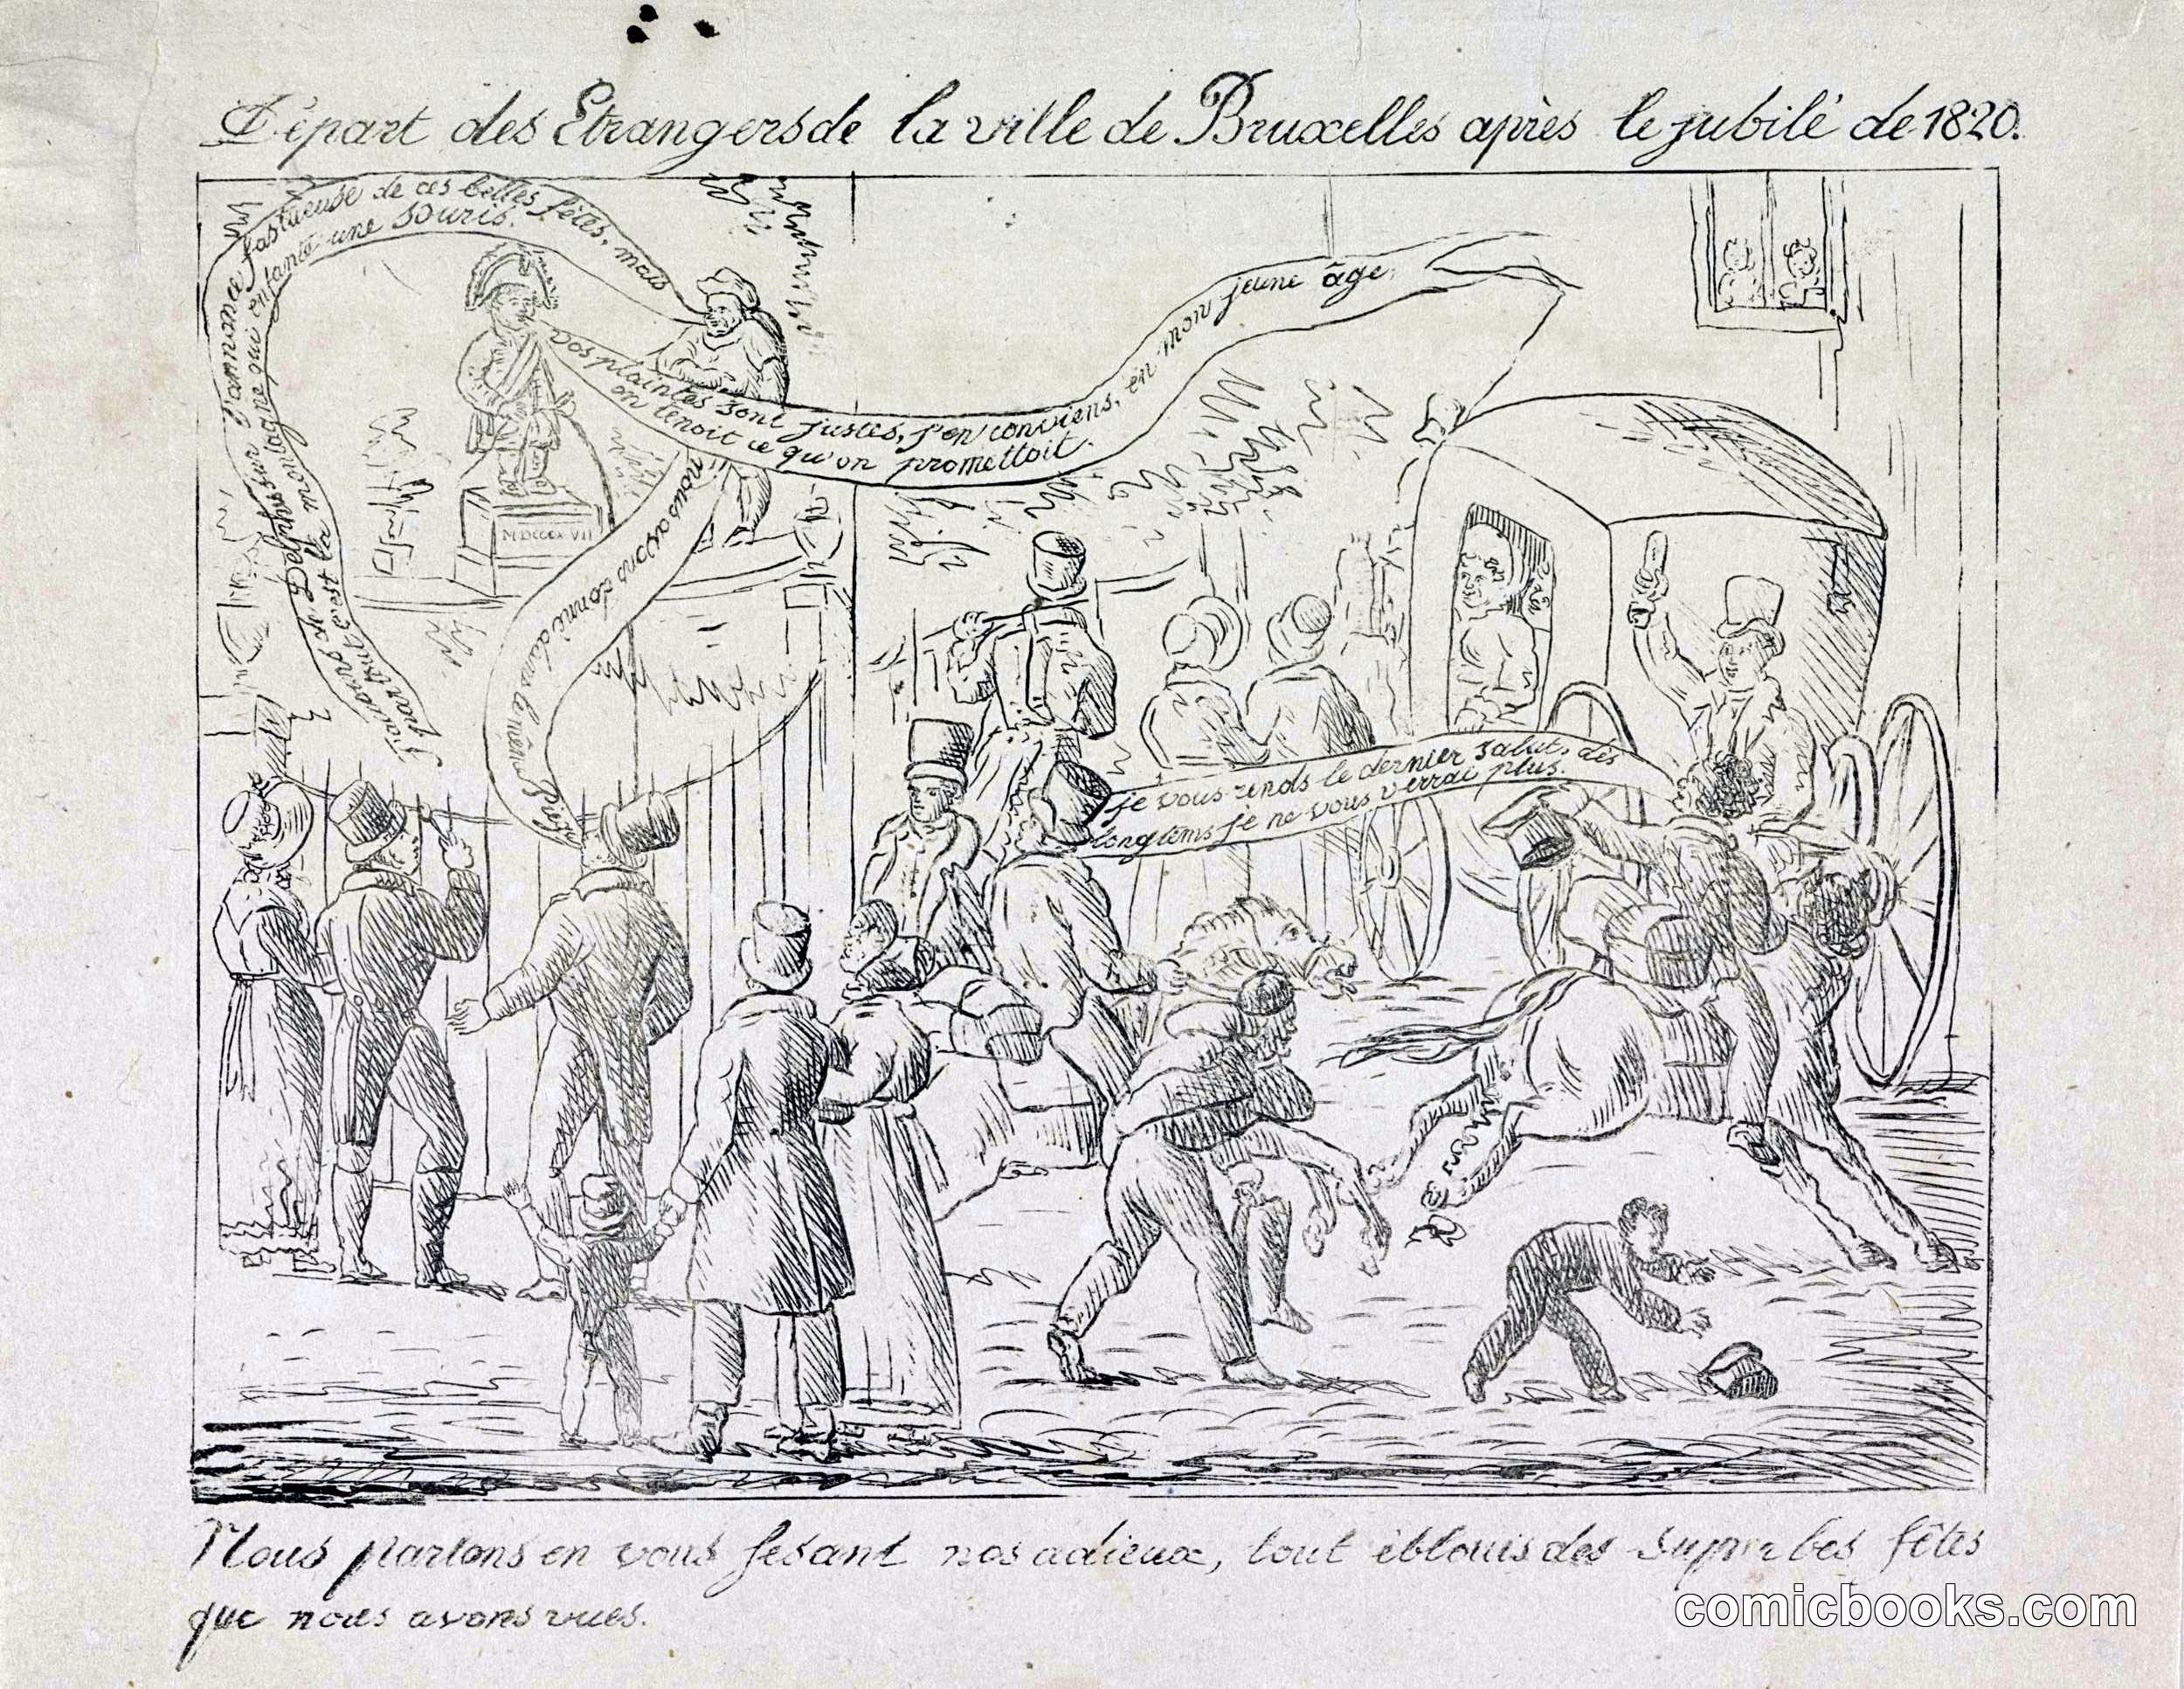 Départ des Etrangers de la ville de Bruxelles après le jubilé de 1820.
sur l'annonce fastueuse de ces belles fêtes, mais
partout c'est la montagne qui enfante une souris.
vos plaintes sont justes, j'en conviens, en mon jeune âge,
on tenoit ce qu'on promettoit.
nous avons donné dans le même piège
je vous rends le dernier salut, dès
longtems je ne vous verrai plus.
Nous partons en vous fesant nos adieux, tout éblouis des superbes fêtes
que nous avons vues.
comicbooks.com